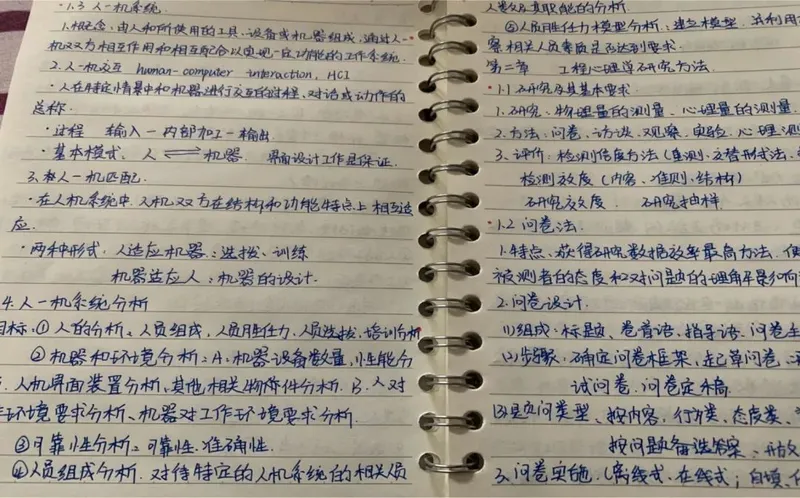 ·1.3 人一机系统.
1.概念:由人和所使用的工具、设备或机器组成,通过人一
机双方相互作用和相互配合以实现一定功能的工作系统.
2.人一机交互 human-computer interaction, HCI
·人在特定情景中和机器进行交互的过程、对话或动作的
总称.
·过程 输入一内部加工一输出.
·基本模式、人⇌机器. 界面设计工作是保证.
3.在人一机匹配.
·在人机系统中,人机双方在结构和功能特点上相互适
应.
·两种形式,人适应机器:选拔、训练
机器适应人:机器的设计.
4.人一机系统分析
目标:①人的分析、人员组成,人员胜任力,人员选拔、培训分析
②机器和环境分析:A.机器设备数量,性能分
人机界面装置分析、其他相关物件分析. B.人对
环境要求分析、机器对工作环境要求分析.
③可靠性分析:可靠性.准确性.
④人员组成分析.对待特定的人机系统的相关人员
人数及其职能的分析
⑤人员胜任力模型分析:建立模型,并利用
察相关人员素质是否达到要求.
第二章 工程心理学研究方法.
·1.1 研究及其基本要求.
1.研究、物理量的测量、心理量的测量.
2.方法:问卷、访谈、观察、实验、心理测
3.评价:检测信度方法(重测、交替形式法、
检测效度(内容、准则、结构)
研究效度. 研究抽样.
·1.2 问卷法.
1.特点、获得研究数据效率最高方法.但
被测者的态度和对问题的理解影响
2.问卷设计.
(1)组成:标题、卷首语、指导语、问卷主
(2)步骤、确定问卷框架、起草问卷、
试问卷.问卷定稿.
(3)题问类型、按内容,行为类、态度类、
按问题备选答案、开放
3.问卷实施.(离线式、在线式;自填、